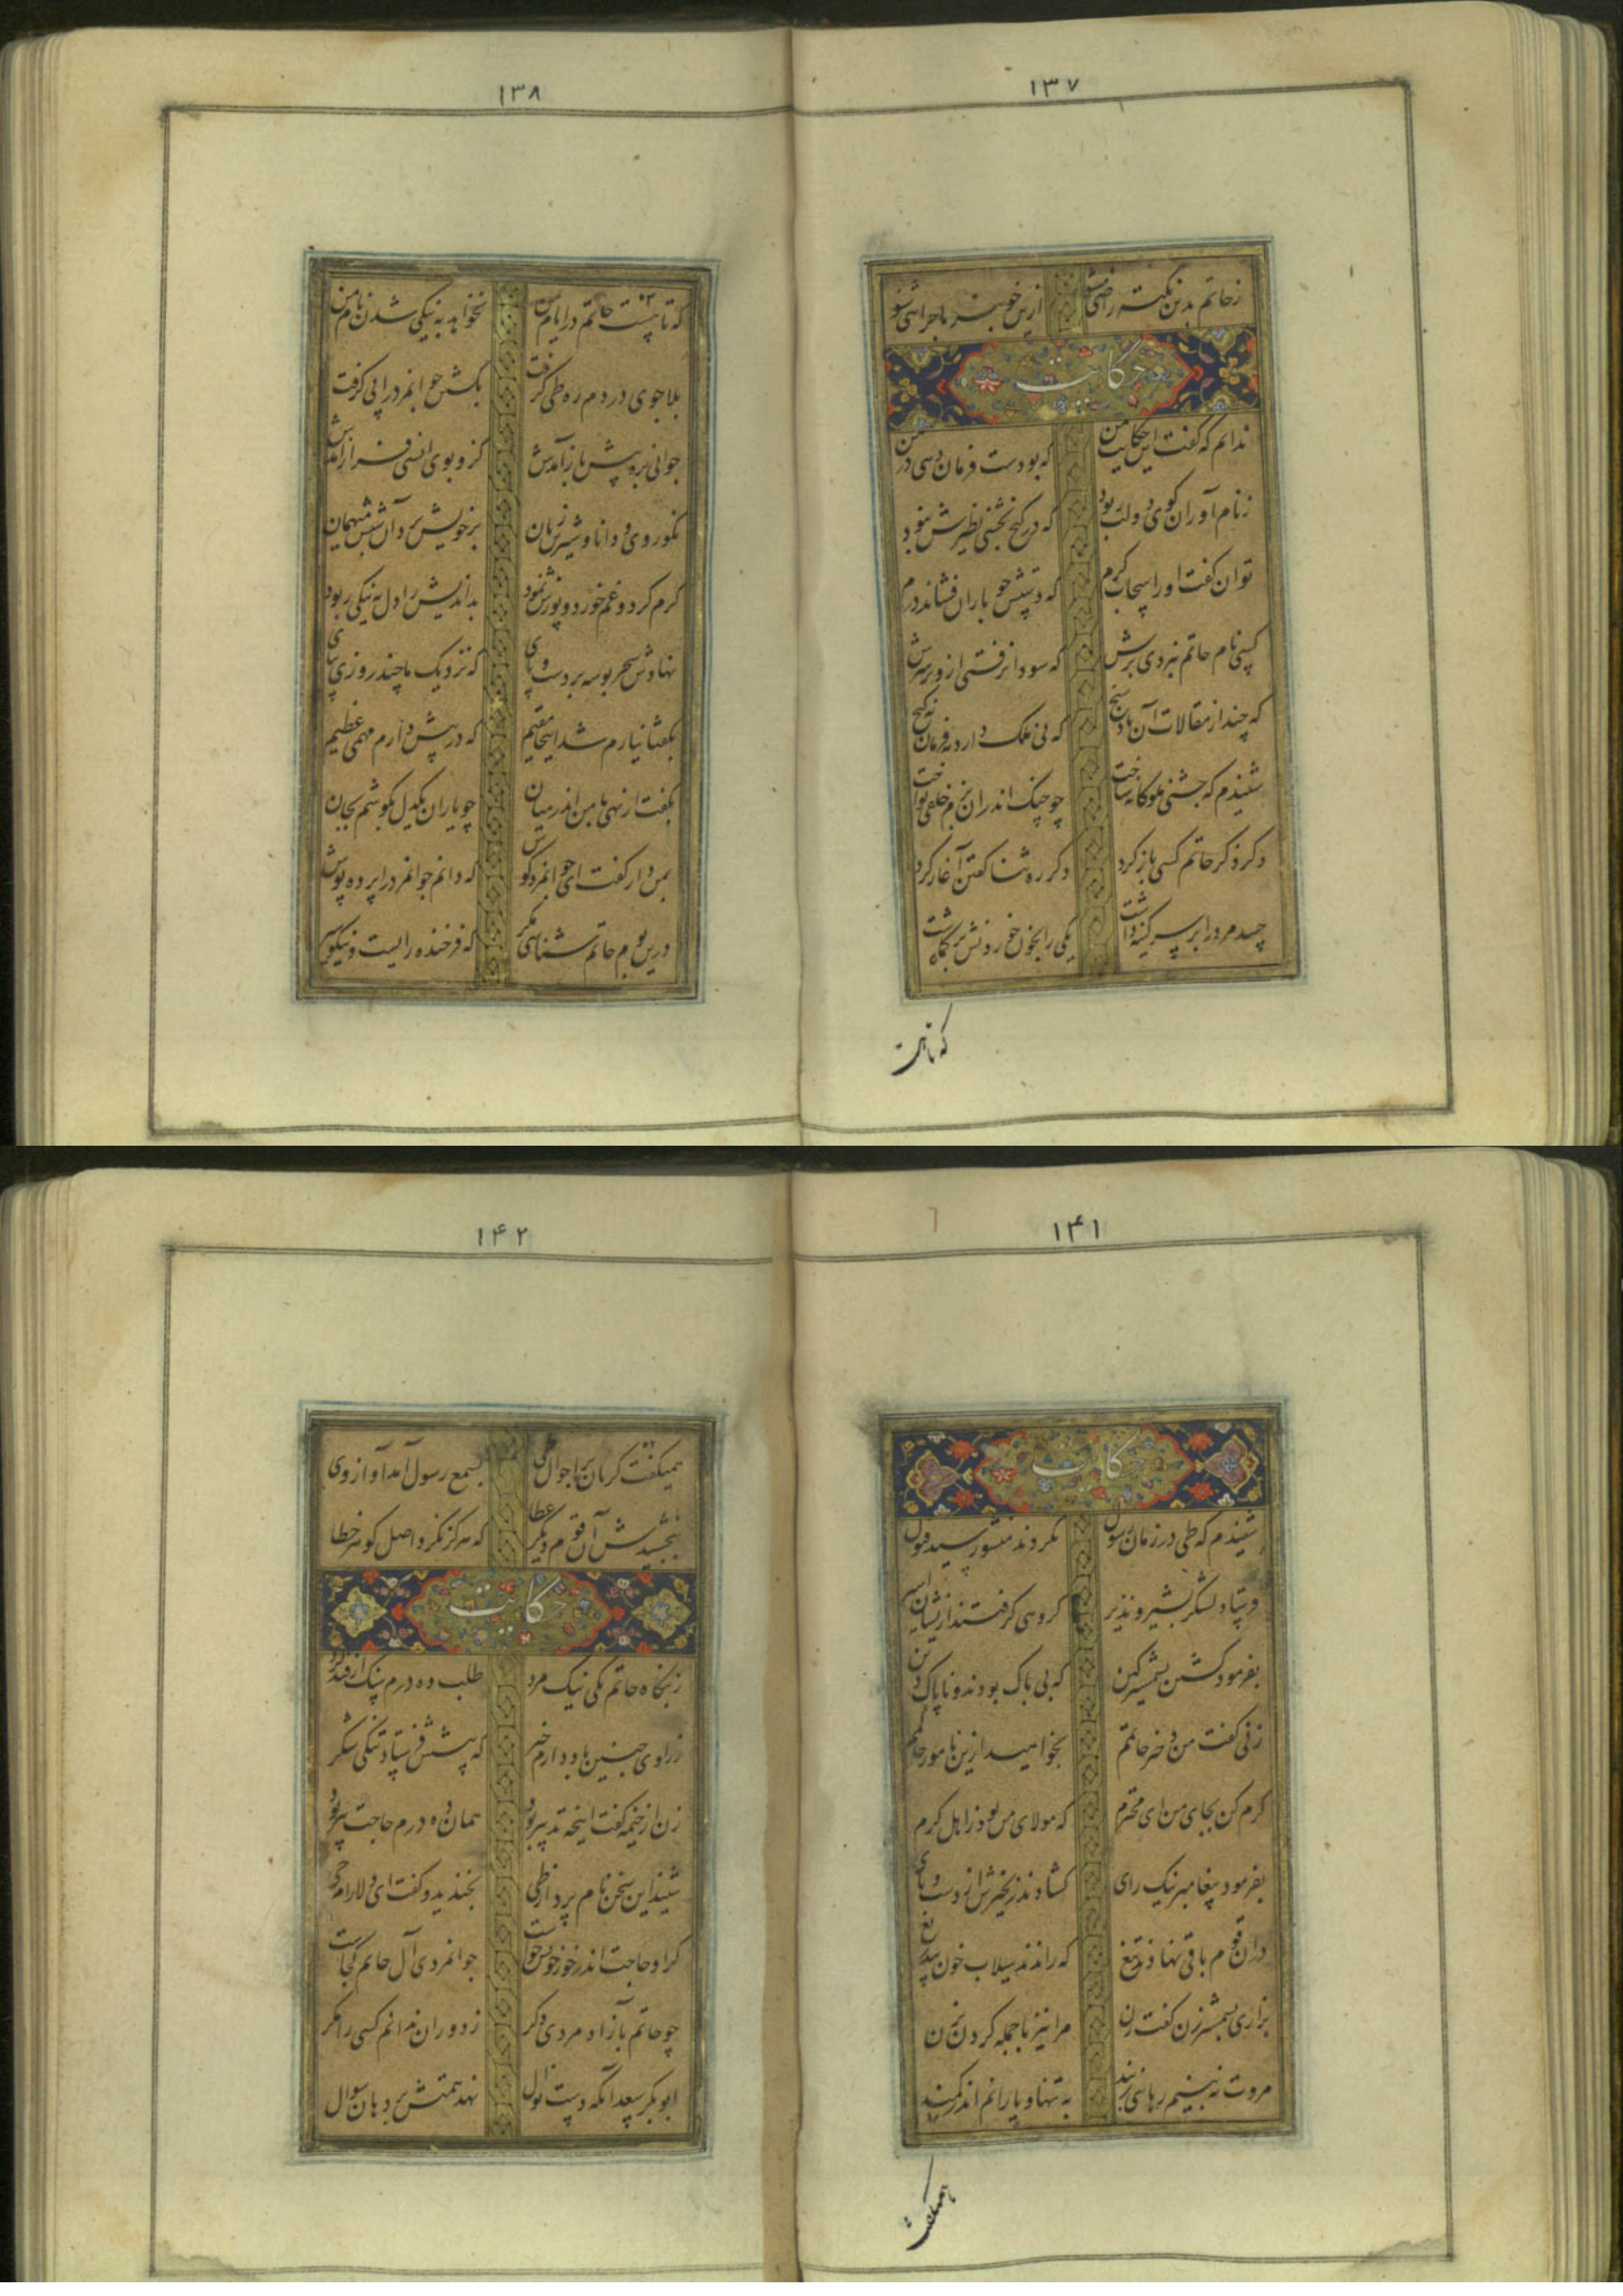 ۱۳۷
ز حاتم بدین نکته راضی مشو ازین خوبتر ماجرائی شنو
حکایت
ندانم که گفت این حکایت بمن که بودست فرمان دهی در یمن
ز نام آوران گوی دولت ربود که در گنج بخشی نظیرش نبود
توان گفت او را سحاب کرم که دستش چو باران فشاندی درم
کسی نام حاتم نبردی برش که سودا نرفتی ازو بر سرش
که چند از مقالات آن باد سنج که نی ملک دارد نه فرمان نه گنج
شنیدم که جشنی ملوکانه ساخت چو چنگ اندران بزم خلقی نواخت
دگر ذکر حاتم کسی باز کرد دگر ره ثنا گفتن آغاز کرد
حسد مرد را بر سر کینه داشت یکی را بخون خوردنش بر گماشت
که تا هست
۱۳۸
که تا هست حاتم در ایام من نخواهد به نیکی شدن نام من
بلا جوی در دم ره طی گرفت بکشتن جوانمرد را پی گرفت
جوانی بره پیش باز آمدش کزو بوی انسی فراز آمدش
نکو روی و دانا و شیرین زبان بر خویش برد آن شبش میهمان
کرم کرد و غم خورد و پوزش نمود بداندیش را دل به نیکی ربود
نهادش سحر بوسه بر دست و پای که نزدیک ما چند روزی بپای
بگفتا نیارم شد اینجا مقیم که در پیش دارم مهمی عظیم
بگفت ار نهی با من اندر میان چو یاران یکدل بکوشم بجان
بمن دار گفت ای جوانمرد گوش که دانم جوانمرد را پرده پوش
درین بوم حاتم شناسی مگر که فرخنده رایست و نیکو سیر
۱۴۱
حکایت
شنیدم که طی در زمان رسول نکردند منشور سید قبول
فرستاد لشکر بشیر و نذیر گروهی گرفتند ازیشان اسیر
بفرمود کشتن بشمشیر کین که بی باک بودند و ناپاک دین
زنی گفت من دختر حاتمم بخواهید ازین نامور حاکمم
کرم کن بجای من ای محترم که مولای من بود ز اهل کرم
بفرمود پیغامبر نیک رای گشادند زنجیرش از دست و پای
در آن قوم باقی نهادند تیغ که رانند سیلاب خون بیدریغ
بزاری بشمشیرزن گفت زن مرا نیز با جمله گردن بزن
مروت نه بینم رهائی ز بند به تنها و یارانم اندر کمند
همیگفت
۱۴۲
همیگفت گریان بر احوال طی بسمع رسول آمد آواز وی
ببخشیدش آن قوم و دیگر عطا که هرگز نکرد اصل گوهر خطا
حکایت
ز بنگاه حاتم یکی نیک مرد طلب ده درم سنگ فانید کرد
ز راوی چنین یاد دارم خبر که پیشش فرستاد تنگی شکر
زن از خیمه گفت اینچه تدبیر بود همان ده درم حاجت پیر بود
شنید این سخن نام بردار طی بخندید و گفت ای دلارام حی
گر او حاجت اندر خور خویش خواست جوانمردی آل حاتم کجاست
چو حاتم بآزاد مردی دگر ز دوران ندانم کسی را مگر
ابو بکر سعد آنکه دست نوال نهد همتش بر دهان سوال